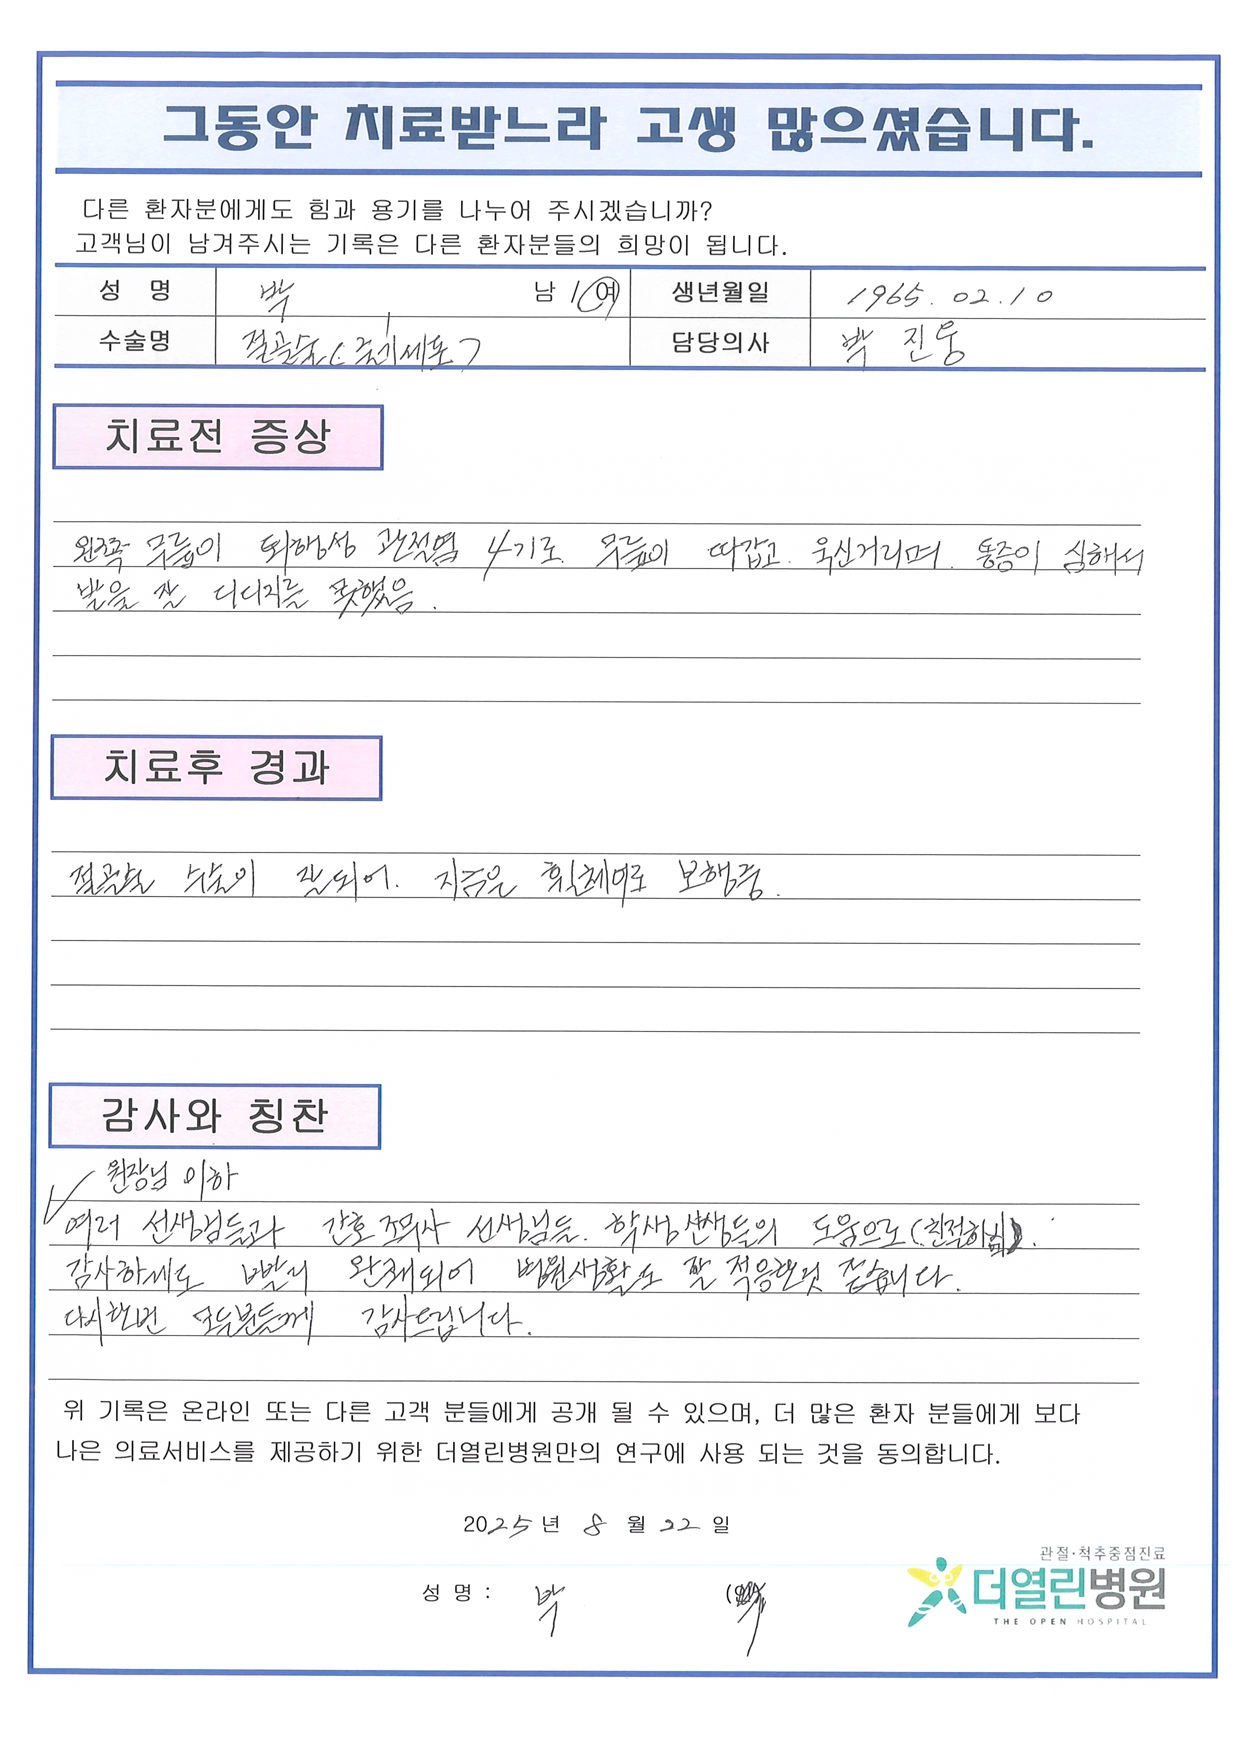 그동안 치료받느라 고생 많으셨습니다.
다른 환자분에게도 힘과 용기를 나누어 주시겠습니까?
고객님이 남겨주시는 기록은 다른 환자분들의 희망이 됩니다.
성 명 박 남 / 여 생년월일 1965. 02. 10
수술명 절골술(줄기세포) 담당의사 박 진웅
치료전 증상
왼쪽 무릎이 퇴행성 관절염 4기로. 무릎이 따갑고. 욱신거리며. 통증이 심해서
발을 잘 디디지를 못했음.
치료후 경과
절골술 수술이 잘되어. 지금은 휠체어로 보행중.
감사와 칭찬
원장님 이하
여러 선생님들과 간호조무사 선생님들. 학생선생들의 도움으로(친절하심).
감사하게도 빨리 완쾌되어 병원생활도 잘 적응한것 같습니다.
다시한번 모두분들께 감사드립니다.
위 기록은 온라인 또는 다른 고객 분들에게 공개 될 수 있으며, 더 많은 환자 분들에게 보다
나은 의료서비스를 제공하기 위한 더열린병원만의 연구에 사용 되는 것을 동의합니다.
2025년 8월 22일
관절·척추중점진료
더열린병원
THE OPEN HOSPITAL
성 명 : 박